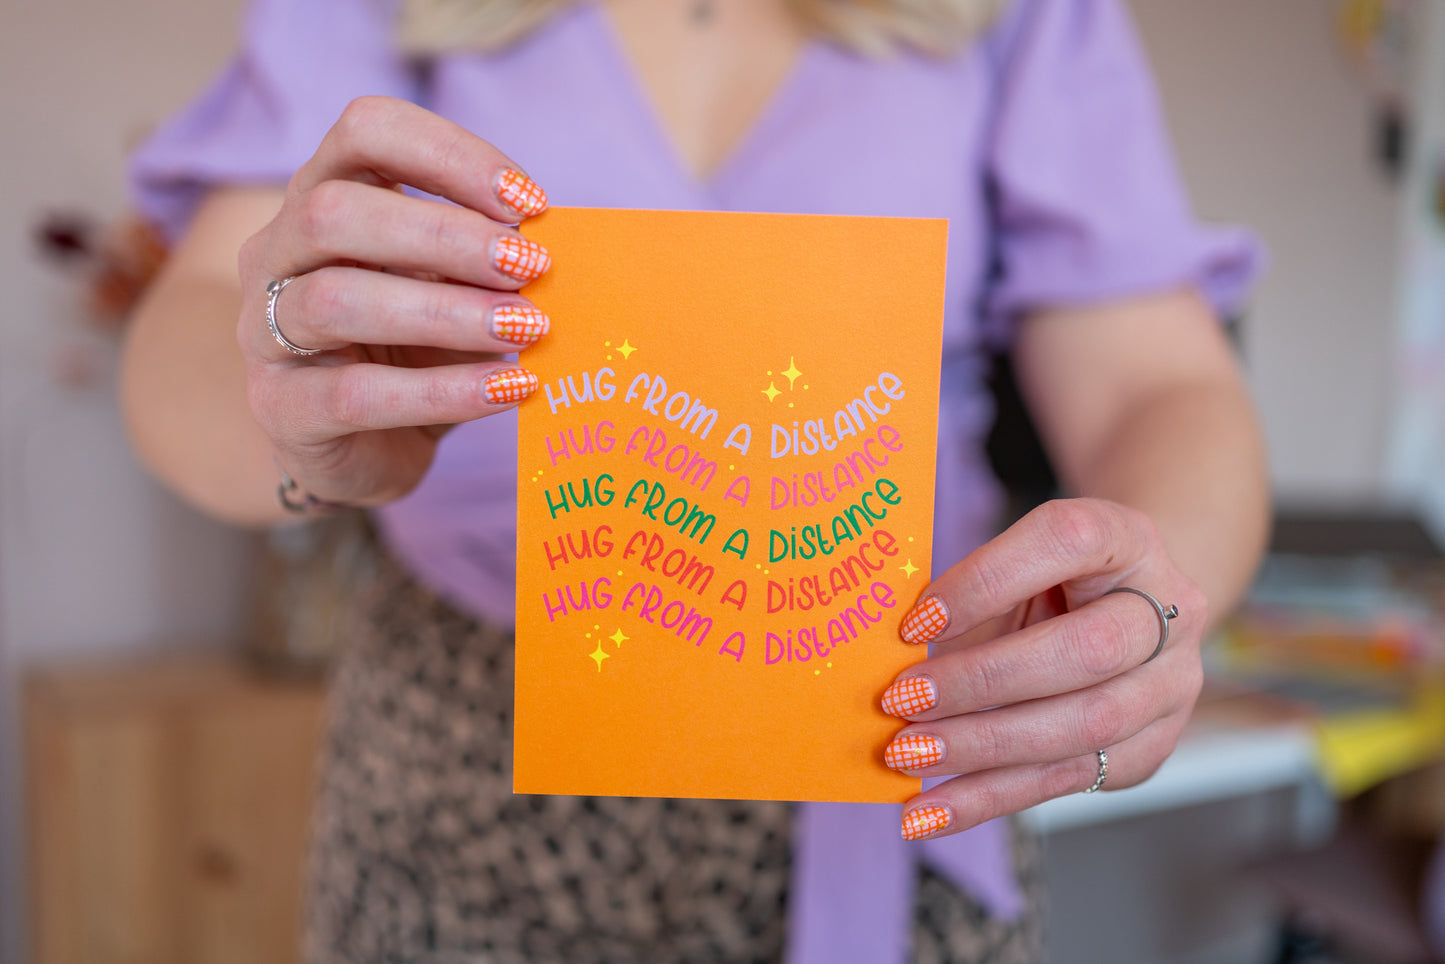 HUG FROM A DISTANCE
HUG FROM A DISTANCE
HUG FROM A DISTANCE
HUG FROM A DISTANCE
HUG FROM A DISTANCE